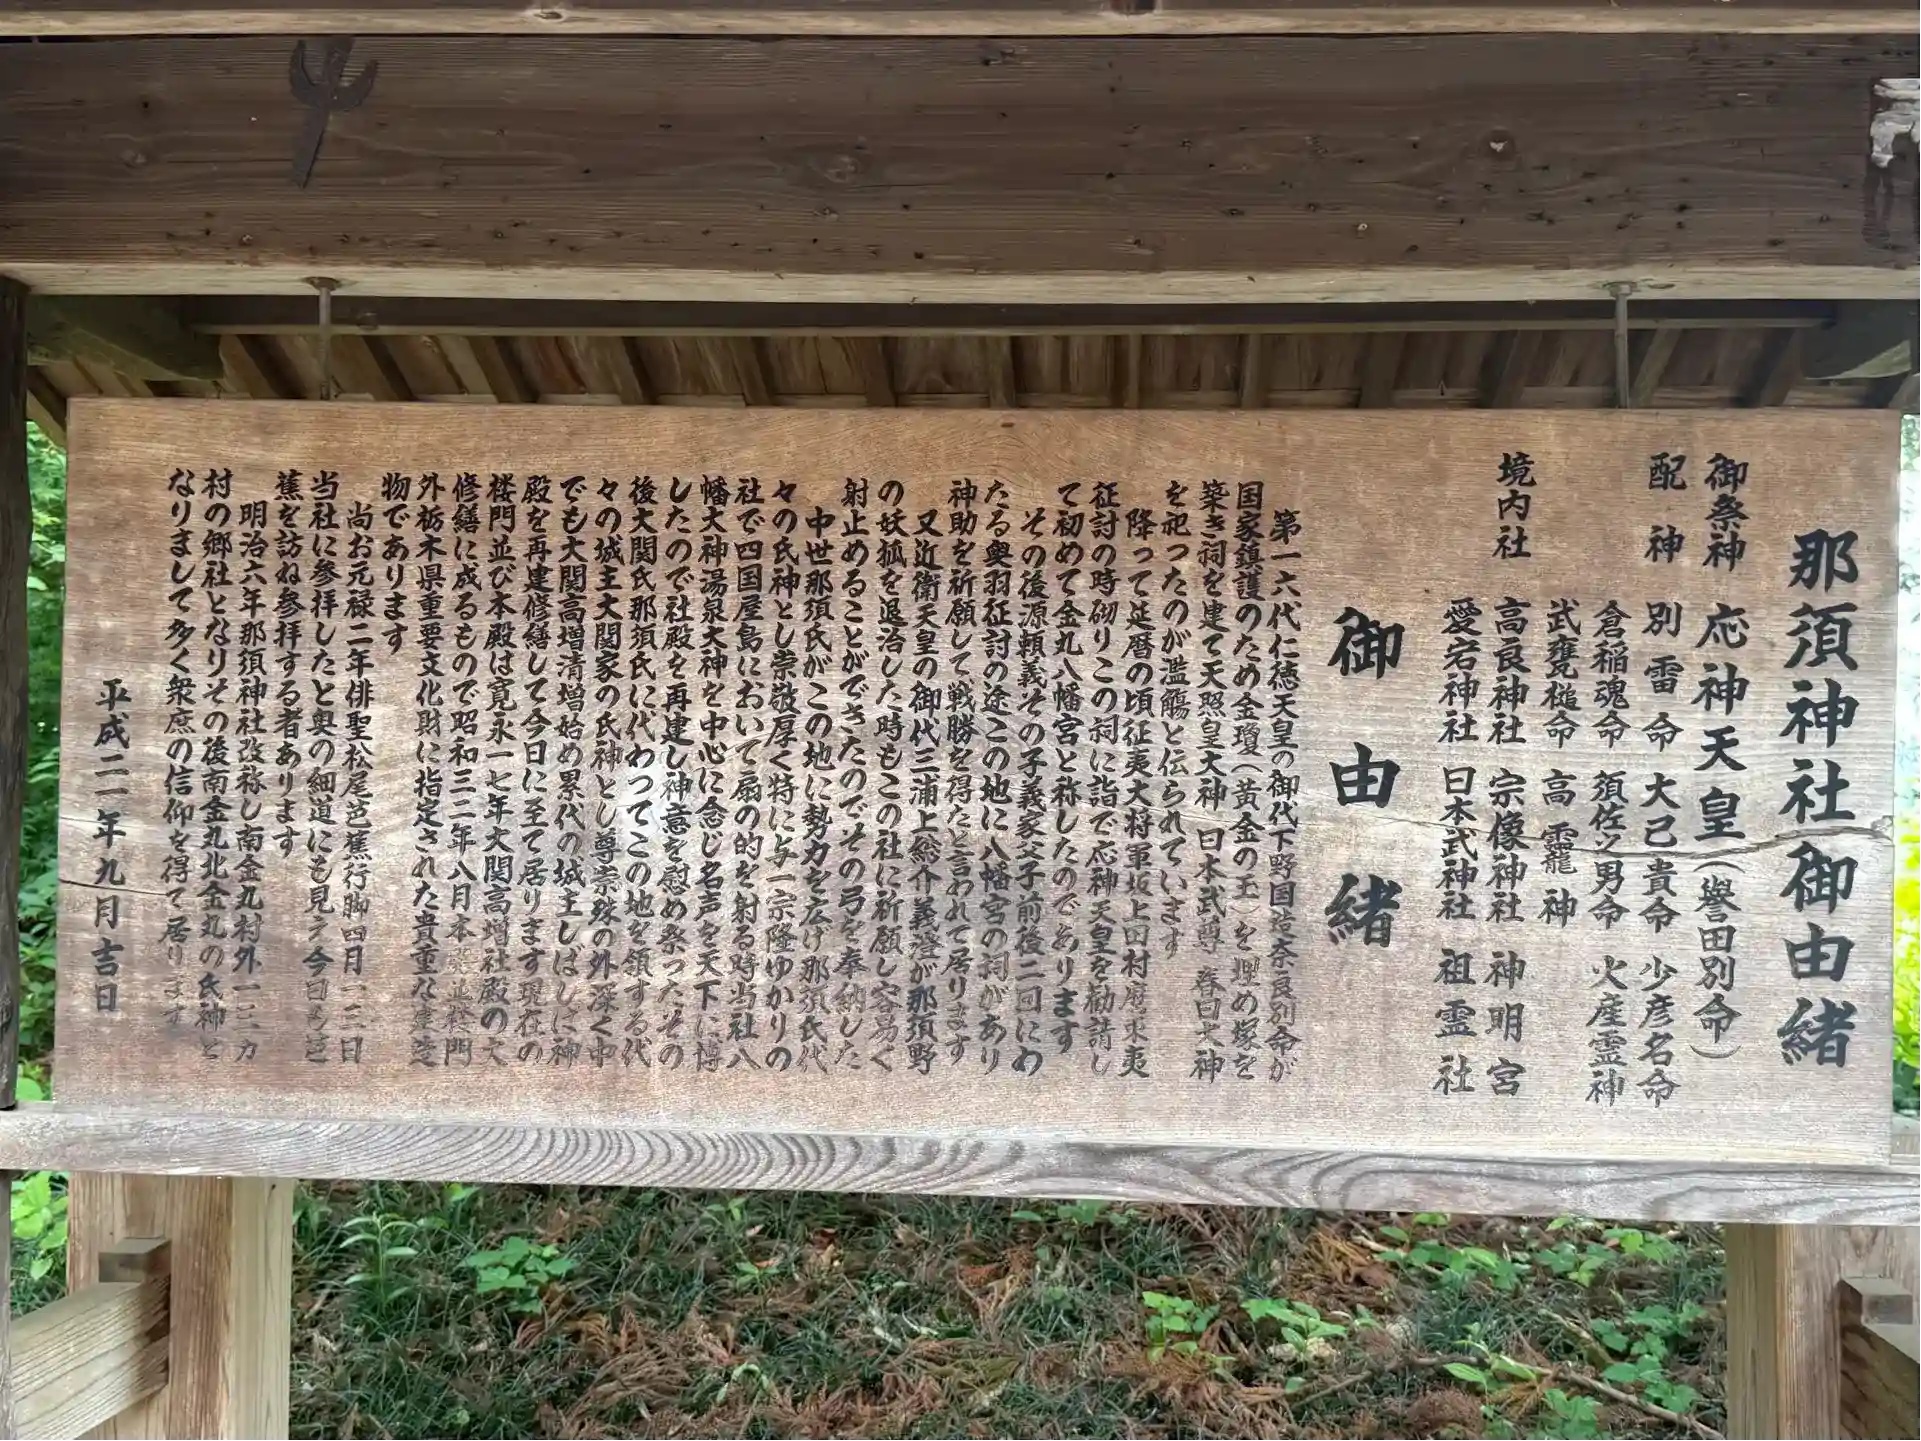 那須神社御由緒
御祭神 応神天皇(誉田別命)
配神 別雷命 大己貴命 少彦名命
倉稲魂命 須佐ノ男命 火産霊神
武甕槌命 高龗神
境内社 高良神社 宗像神社 神明宮
愛宕神社 日本武神社 祖霊社
御由緒
第一六代仁徳天皇の御代下野国造奈良別命が
国家鎮護のため金瓊(黄金の玉)を埋め塚を
築き祠を建て天照皇大神 日本武尊 春日大神
を祀ったのが濫觴と伝られています
降って延暦の頃征夷大将軍坂上田村麿東夷
征討の時砌りこの祠に詣で応神天皇を勧請し
て初めて金丸八幡宮と称したのであります
その後源頼義その子義家父子前後二回にわ
たる奥羽征討の途この地に八幡宮の祠があり
神助を祈願して戦勝を得たと言われて居ります
又近衛天皇の御代三浦上総介義澄が那須野
の妖狐を退治した時もこの社に祈願し容易く
射止めることができたのでその弓を奉納した
中世那須氏がこの地に勢力を広げ那須氏代
々の氏神とし崇敬厚く特に与一宗隆ゆかりの
社で四国屋島において扇の的を射る時当社八
幡大神湯泉大神を中心に念じ名声を天下に博
したので社殿を再建し神意を慰め祭ったその
後大関氏那須氏に代わってこの地を領する代
々の城主大関家の氏神とし尊崇殊の外深く中
でも大関高増清増始め累代の城主しばしば神
殿を再建修繕して今日に至て居ります現在の
楼門並び本殿は寛永一七年大関高増社殿の大
修繕に成るもので昭和三二年八月本殿並楼門
外栃木県重要文化財に指定された貴重な建造
物であります
尚お元禄二年俳聖松尾芭蕉行脚四月一三日
当社に参拝したと奥の細道にも見え今日も芭
蕉を訪ね参拝する者あります
明治六年那須神社改称し南金丸村外一三カ
村の郷社となりその後南金丸北金丸の氏神と
なりまして多く衆庶の信仰を得て居ります
平成二一年九月吉日